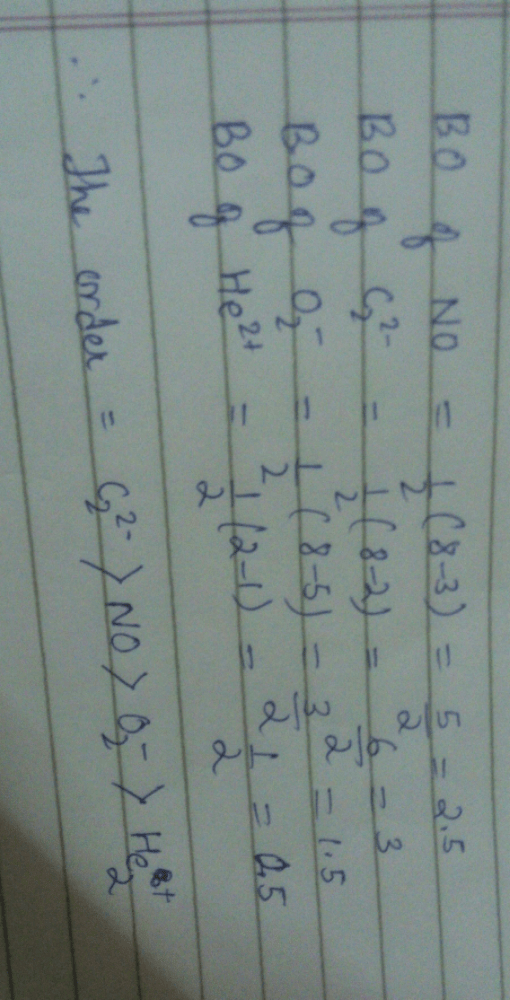 BO of NO = 1/2 (8-3) = 5/2 = 2.5
BO of C₂²⁻ = 1/2 (8-2) = 6/2 = 3
BO of O₂⁻ = 1/2 (8-5) = 3/2 = 1.5
BO of He²⁺ = 1/2 (2-1) = 1/2 = 0.5
∴ The order = C₂²⁻ > NO > O₂⁻ > He₂⁺